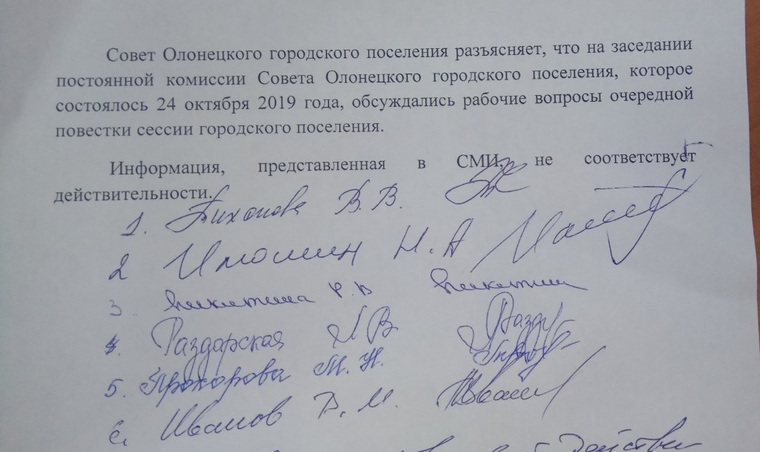 Совет Олонецкого городского поселения разъясняет, что на заседании
постоянной комиссии Совета Олонецкого городского поселения, которое
состоялось 24 октября 2019 года, обсуждались рабочие вопросы очередной
повестки сессии городского поселения.
Информация, представленная в СМИ, не соответствует
действительности.
1. Тихонова В. В.
2 Н. А
3 Никитина
4. Раздарская И В
5. Прохорова Т. Н.
6. Иванов В. М.